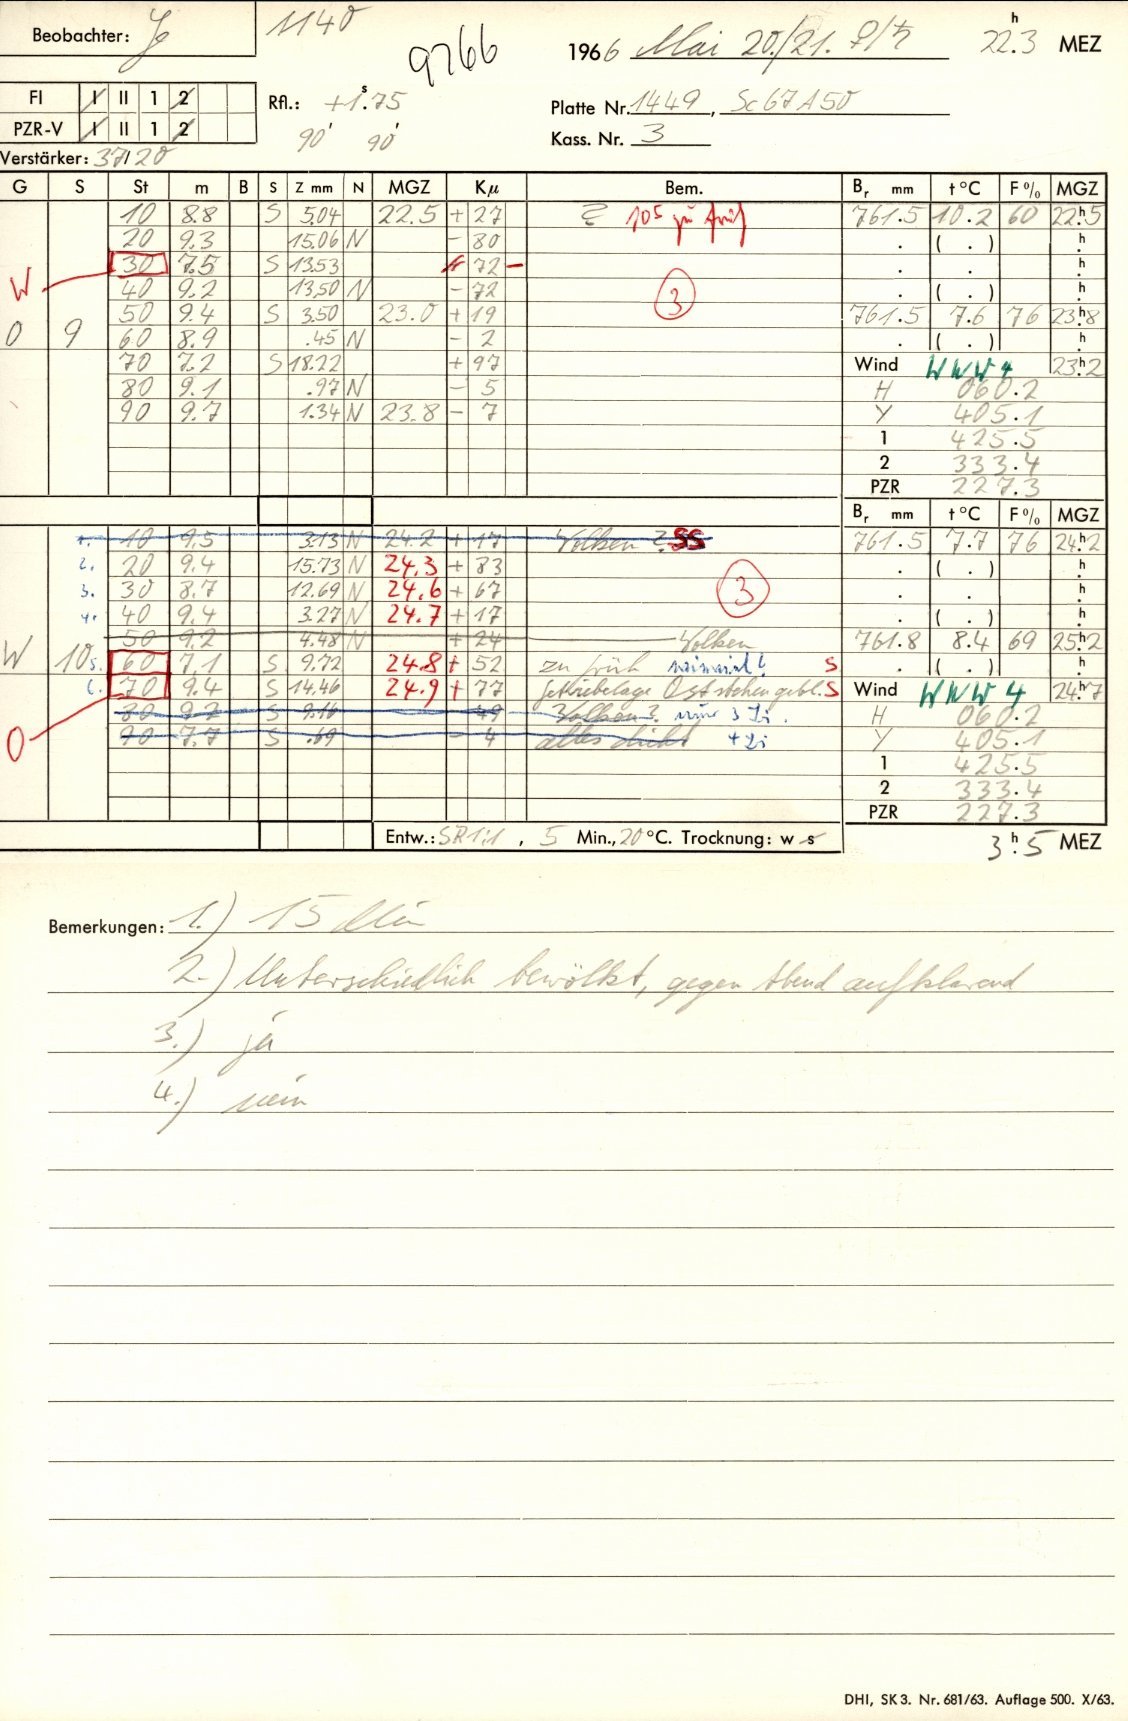 Beobachter: Je
1140
9766
1966 Mai 20./21. ♀/♄ 22.3 h MEZ
FI I II 1 2
PZR-V I II 1 2
Rfl.: +1.75 s
90' 90'
Platte Nr. 1449, Sc67A50
Kass. Nr. 3
Verstärker: 37/20
G S St m B S Z mm N MGZ Kμ Bem. Br mm t °C F % MGZ
10 8.8 S 5.04 22.5 + 27 10s zu früh 761.5 10.2 60 22h.5
20 9.3 15.06 N - 80 . ( . ) h.
W 30 7.5 S 13.53 72 - . . h.
40 9.2 13.50 N - 72 3 . ( . ) h.
50 9.4 S 3.50 23.0 + 19 761.5 7.6 76 23h.8
0 9 60 8.9 .45 N - 2 . ( . ) h.
70 7.2 S 18.22 + 97 Wind WNW 4 23h.2
80 9.1 .97 N - 5 H 060.2
90 9.7 1.34 N 23.8 - 7 Y 405.1
1 425.5
2 333.4
PZR 227.3
Br mm t °C F % MGZ
1. 10 9.5 3.13 N 24.2 + 17 Wolken ? SS 761.5 7.7 76 24h.2
2. 20 9.4 15.73 N 24.3 + 83 . ( . ) h.
3. 30 8.7 12.69 N 24.6 + 67 3 . . h.
4. 40 9.4 3.27 N 24.7 + 17 . ( . ) h.
50 9.2 4.48 N + 24 Wolken 761.8 8.4 69 25h.2
W 10 5. 60 7.1 S 9.72 24.8 + 52 zu früh S . ( . ) h.
6. 70 9.4 S 14.46 24.9 + 77 Getriebelage Ost stehen gebl. S Wind WNW 4 24h.7
80 9.2 S 9.16 49 Wolken ? nur 3 Zi. H 060.2
0 90 7.7 S .69 - 4 alles dicht + Zi Y 405.1
1 425.5
2 333.4
PZR 227.3
Entw.: SR 1:1, 5 Min., 20 °C. Trocknung: w s
3 h.5 MEZ
Bemerkungen: 1.) 15 Min
2.) Unterschiedlich bewölkt, gegen Abend aufklarend
3.) ja
4.) nein
DHI, SK 3. Nr. 681/63. Auflage 500. X/63.